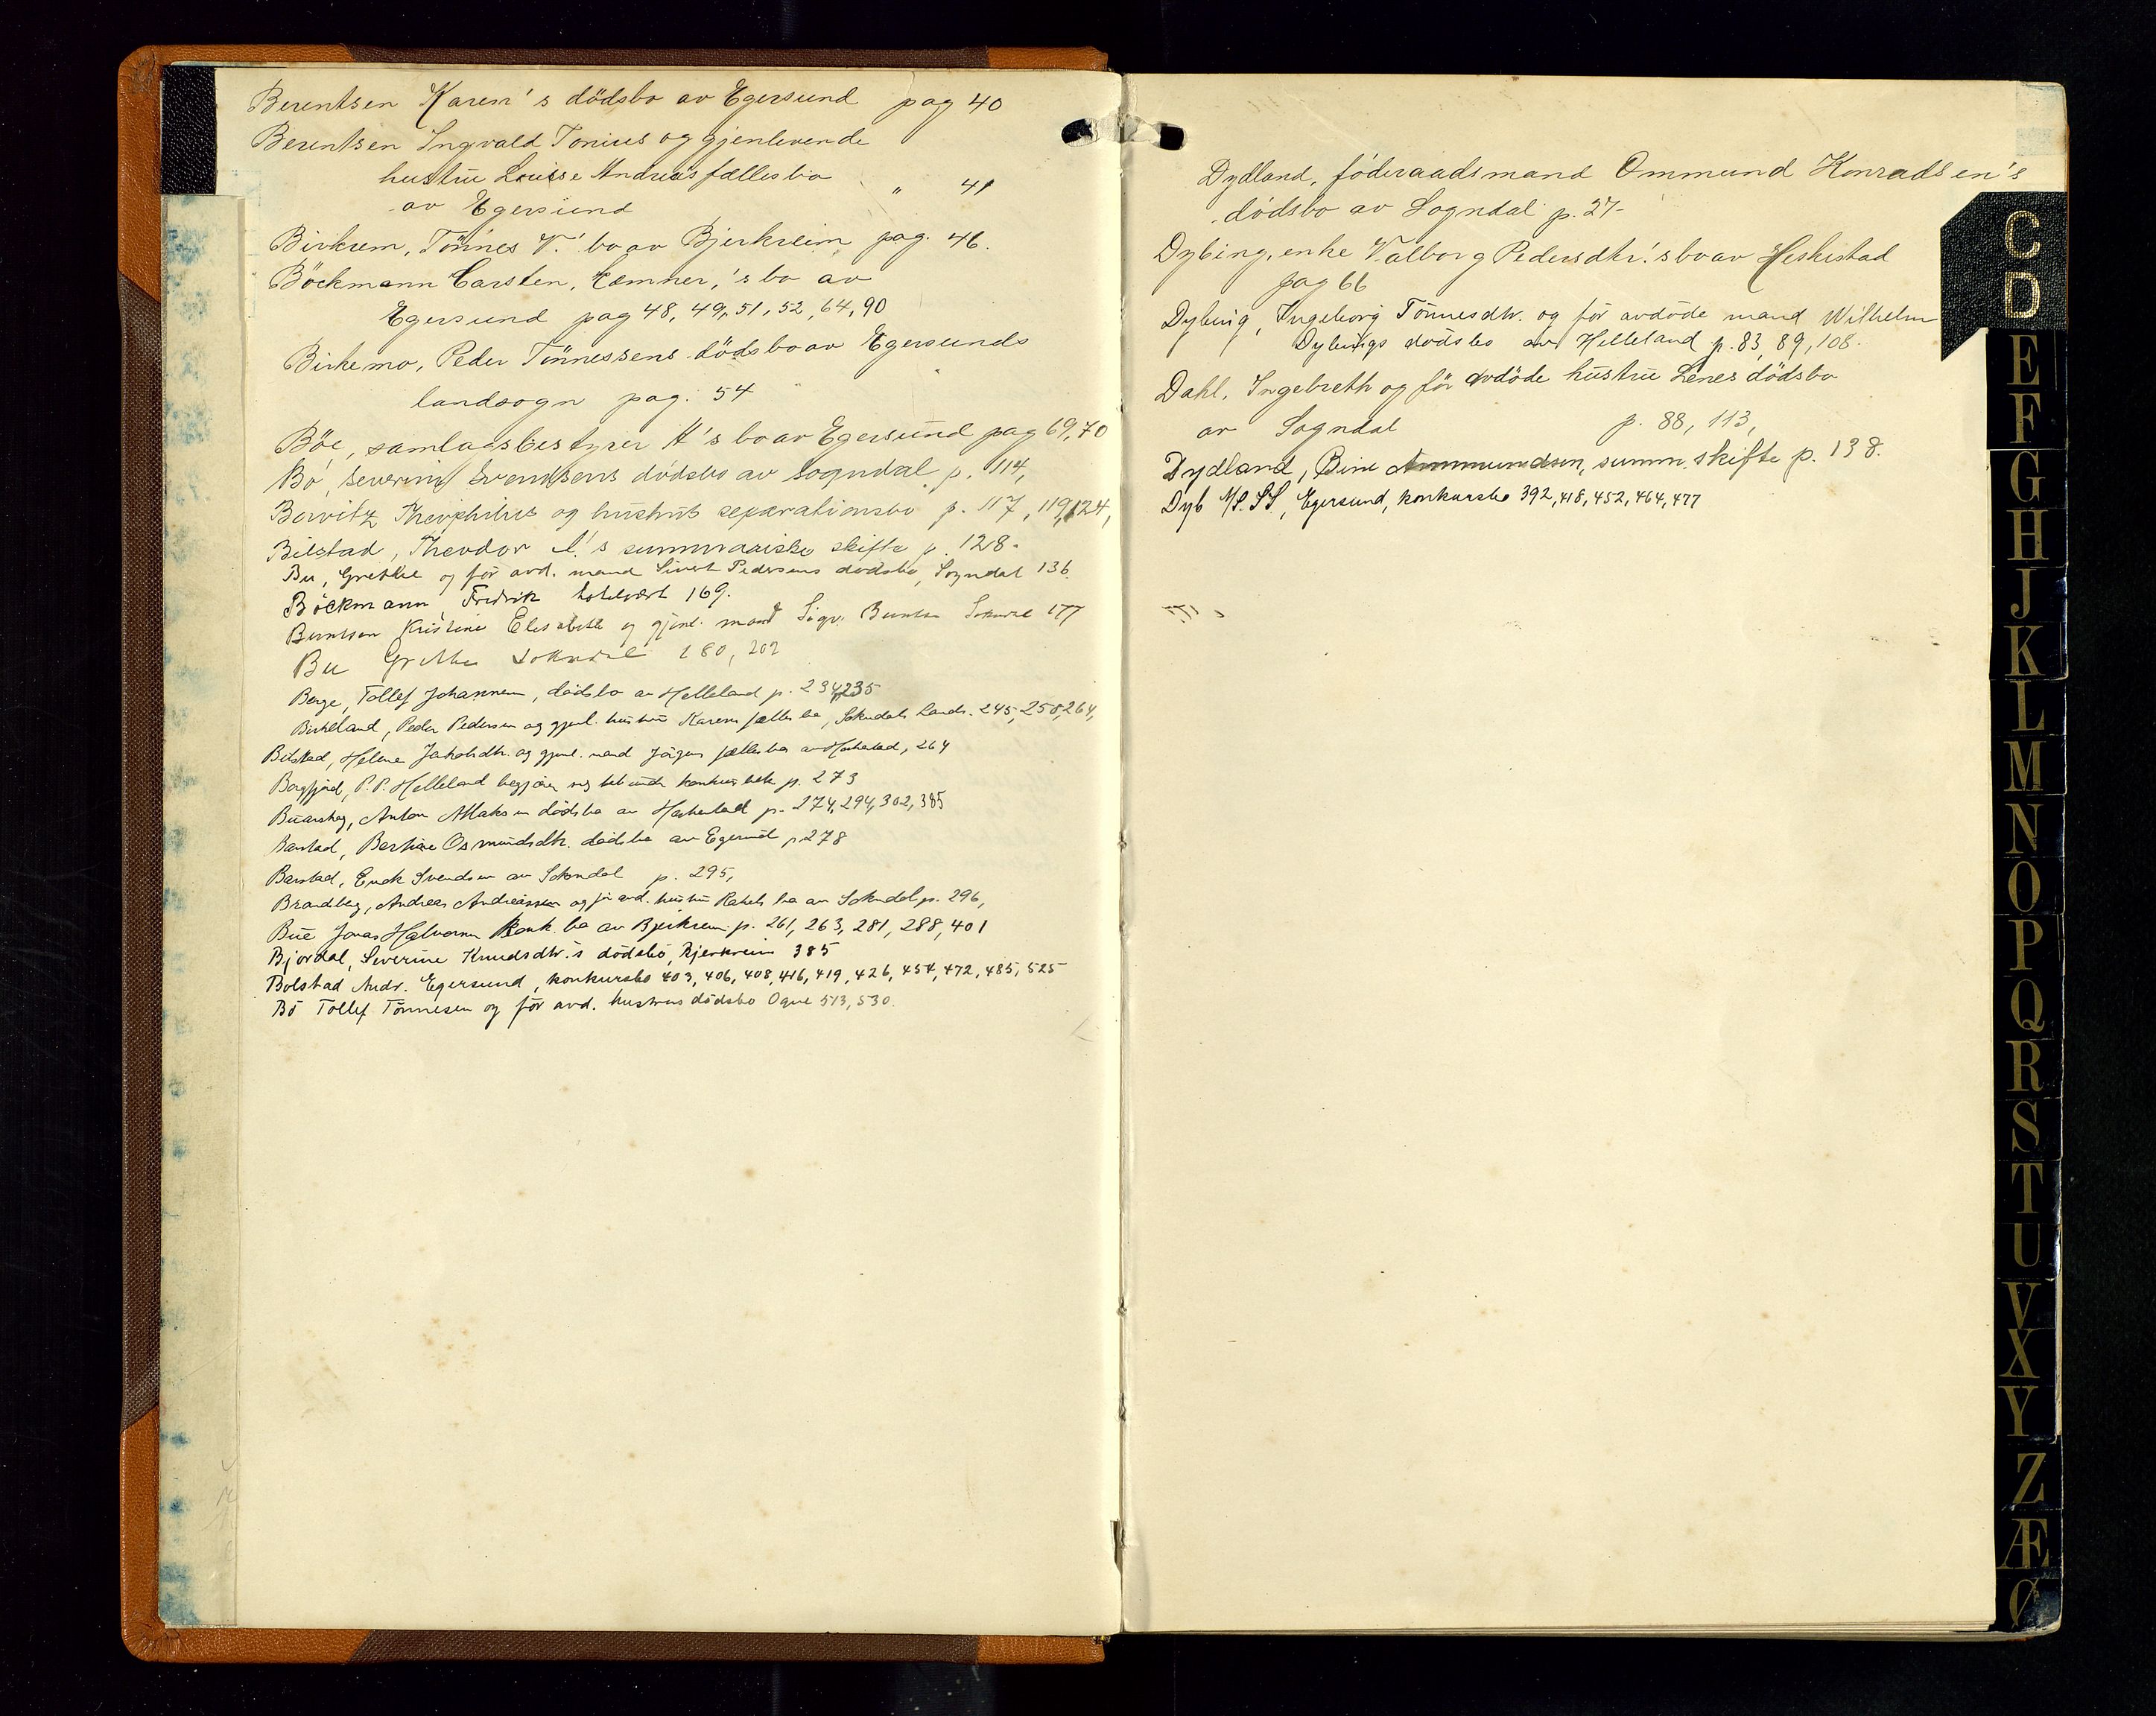 Berentsen Karen's dödsbo av Egersund pag 40
Berentsen Ingvald Tonius og gjenlevende
hustru Louise Andrea's fællesbo " 41
av Egersund
Birkrem, Tönnes V.' bo av Bjerkreim pag. 46.
Böckmann Carsten, Kæmner,'s bo av
Egersund pag 48, 49, 51, 52, 64, 90
Birkemo, Peder Tönnessens dödsbo av Egersunds
landsogn pag. 54
Böe, samlagsbestyrer A's bo av Egersund pag 69, 70
Bö, Severin Svendsens dödsbo av Sogndal p. 114,
Borvitz Theophilus og hustrus separationsbo p. 117, 119, 124,
Bilstad, Theodor A.'s summariske skifte p. 128.
Bu, Grethe og for avd. mand Sivert Pedersens dödsbo, Sogndal 136.
Böckmann Fredrik hotelvert 169.
Berntsen Kristine Elisabeth og gjenl. mand Sigv. Berntsen Sokndal 177
Bu Grethe Sokndal 180, 202
Berge, Tollef Johannesen, dödsbo av Helleland p. 234, 235
Birkeland, Peder Pedersen og gjenl. hustru Karens fællesbo, Sokndals Lands. 245, 258, 264,
Bilstad, Helene Jakobsdtr. og gjenl. mand Jörgens fællesbo av Heskestad, 264
Bergfjord, P.P. Helleland begjærer sig tat under konkursbeh. p. 273
Buarskog, Anton Atlaksen dödsbo av Heskestad p. 274, 294, 302, 385
Barstad, Bertine Osmundsdtr. dödsbo av Egersund p 278
Barstad, Enok Svendsen av Sokndal p. 295,
Brandberg, Andreas Andreassen og for avd. hustru Rakels bo av Sokndal p. 296,
Bue Jonas Halvorsen Konk. bo av Bjerkrem p. 261, 263, 281, 288, 401
Bjordal, Severine Knudsdtr.'s dödsbo, Bjerkreim 385
Bolstad Andr. Egersund, konkursbo 403, 406, 408, 416, 419, 426, 454, 472, 485, 525
Bö Tollef Tönnesen og for avd. hustrus dödsbo Ogne 513, 530.
Dydland, föderaadsmand Ommund Konradsen's
dödsbo av Sogndal p. 27-
Dybing, enke Valborg Pedersdtr.'s bo av Heskestad
pag 66
Dybing, Ingeborg Tönnesdtr. og för avdöde mand Wilhelm
Dybings dödsbo av Helleland p. 83, 89, 108.
Dahl, Ingebreth og för avdöde hustru Lenes dödsbo
av Sogndal p. 88, 113,
Dydland, Bine Ammundsen, summ. skifte p. 138.
Dyb A/S. SS., Egersund, konkursbo 392, 418, 452, 464, 477
C
D
E
F
G
H
J
K
L
M
N
O
P
Q
R
S
T
U
V
X
Y
Z
Æ
Ø